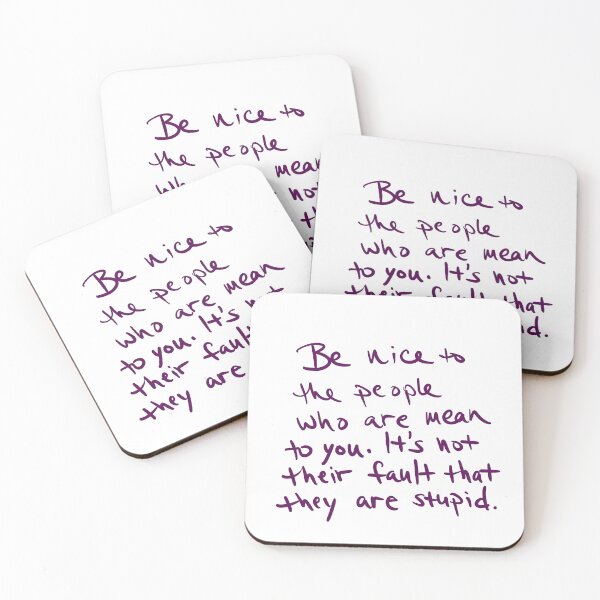 Be nice to
the people
who mean
not
Be nice to
the people
who are mean
to you. It's not
their fault that
Be nice to
the people
who are mean
to you. It's not
their fault
they are
Be nice to
the people
who are mean
to you. It's not
their fault that
they are stupid.